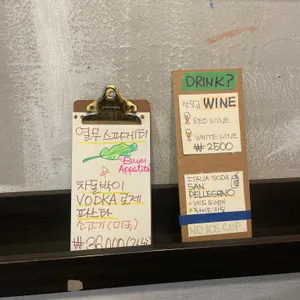 열무스파게티
Buon
Appetito
차돌박이
VODKA로제
파스타
소고기(미국)
₩26,000 (2인)
DRINK?
WINE
RED WINE
WHITE WINE
₩2500
ITALIA SODA
SAN
PELLEGRINO
NO ICE CUP